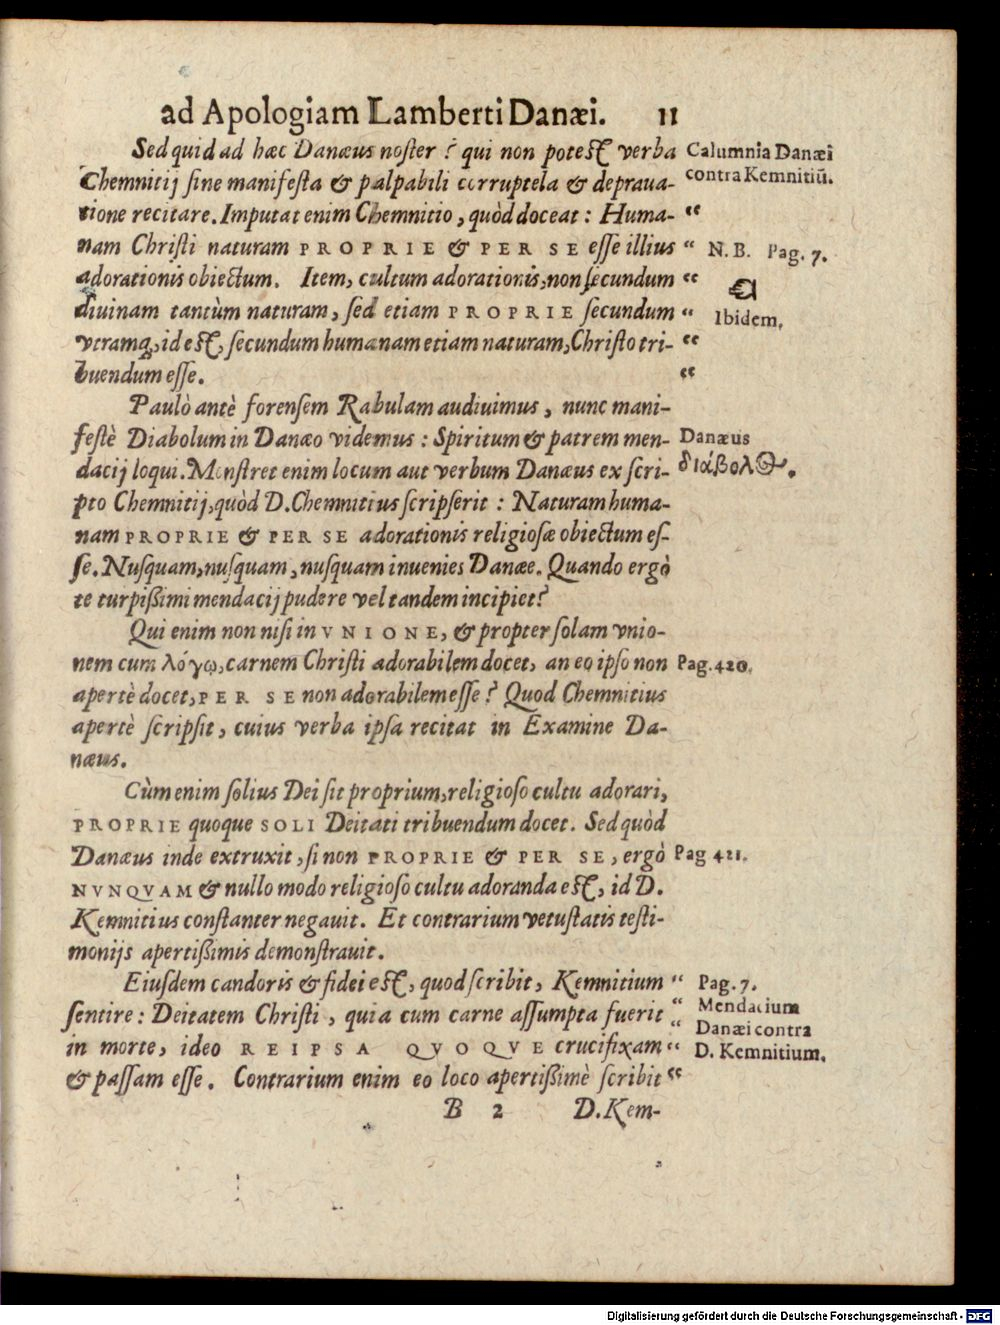 ad Apologiam Lamberti Danæi. 11
Sed quid ad hæc Danæus noster? qui non potest verba
Calumnia Danæi
Chemnitij sine manifesta & palpabili corruptela & deprava-
contra Kemnitiū.
tione recitare. Imputat enim Chemnitio, quòd doceat: Huma- “
nam Christi naturam PROPRIE & PER SE esse illius “
N.B. Pag. 7.
adorationis obiectum. Item, cultum adorationis, non secundum “
diuinam tantùm naturam, sed etiam PROPRIE secundum “
Ibidem.
vtramq́;, id est, secundum humanam etiam naturam, Christo tri- “
buendum esse. “
Paulò antè forensem Rabulam audiuimus, nunc mani-
festè Diabolum in Danæo videmus: Spiritum & patrem men-
Danæus
dacij loqui. Monstret enim locum aut verbum Danæus ex scri-
διάβολος.
pto Chemnitij, quòd D. Chemnitius scripserit: Naturam huma-
nam PROPRIE & PER SE adorationis religiosæ obiectum es-
se. Nusquam, nusquam, nusquam inuenies Danæe. Quando ergò
te turpißimi mendacij pudere vel tandem incipiet?
Qui enim non nisi in VNIONE, & propter solam vnio-
nem cum λόγῳ, carnem Christi adorabilem docet, an eo ipso non
Pag. 420.
apertè docet, PER SE non adorabilem esse? Quod Chemnitius
apertè scripsit, cuius verba ipsa recitat in Examine Da-
næus.
Cùm enim solius Dei sit proprium, religioso cultu adorari,
PROPRIE quoque SOLI Deitati tribuendum docet. Sed quòd
Danæus inde extruxit, si non PROPRIE & PER SE, ergò
Pag 421.
NVNQVAM & nullo modo religioso cultu adoranda est, id D.
Kemnitius constanter negauit. Et contrarium vetustatis testi-
monijs apertißimis demonstrauit.
Eiusdem candoris & fidei est, quod scribit, Kemnitium “
Pag. 7.
sentire: Deitatem Christi, quia cum carne assumpta fuerit “
Mendacium
“
Danæi contra
in morte, ideo REIPSA QVOQVE crucifixam “
D. Kemnitium.
& passam esse. Contrarium enim eo loco apertißimè scribit “
B 2 D. Kem-
Digitalisierung gefördert durch die Deutsche Forschungsgemeinschaft - DFG